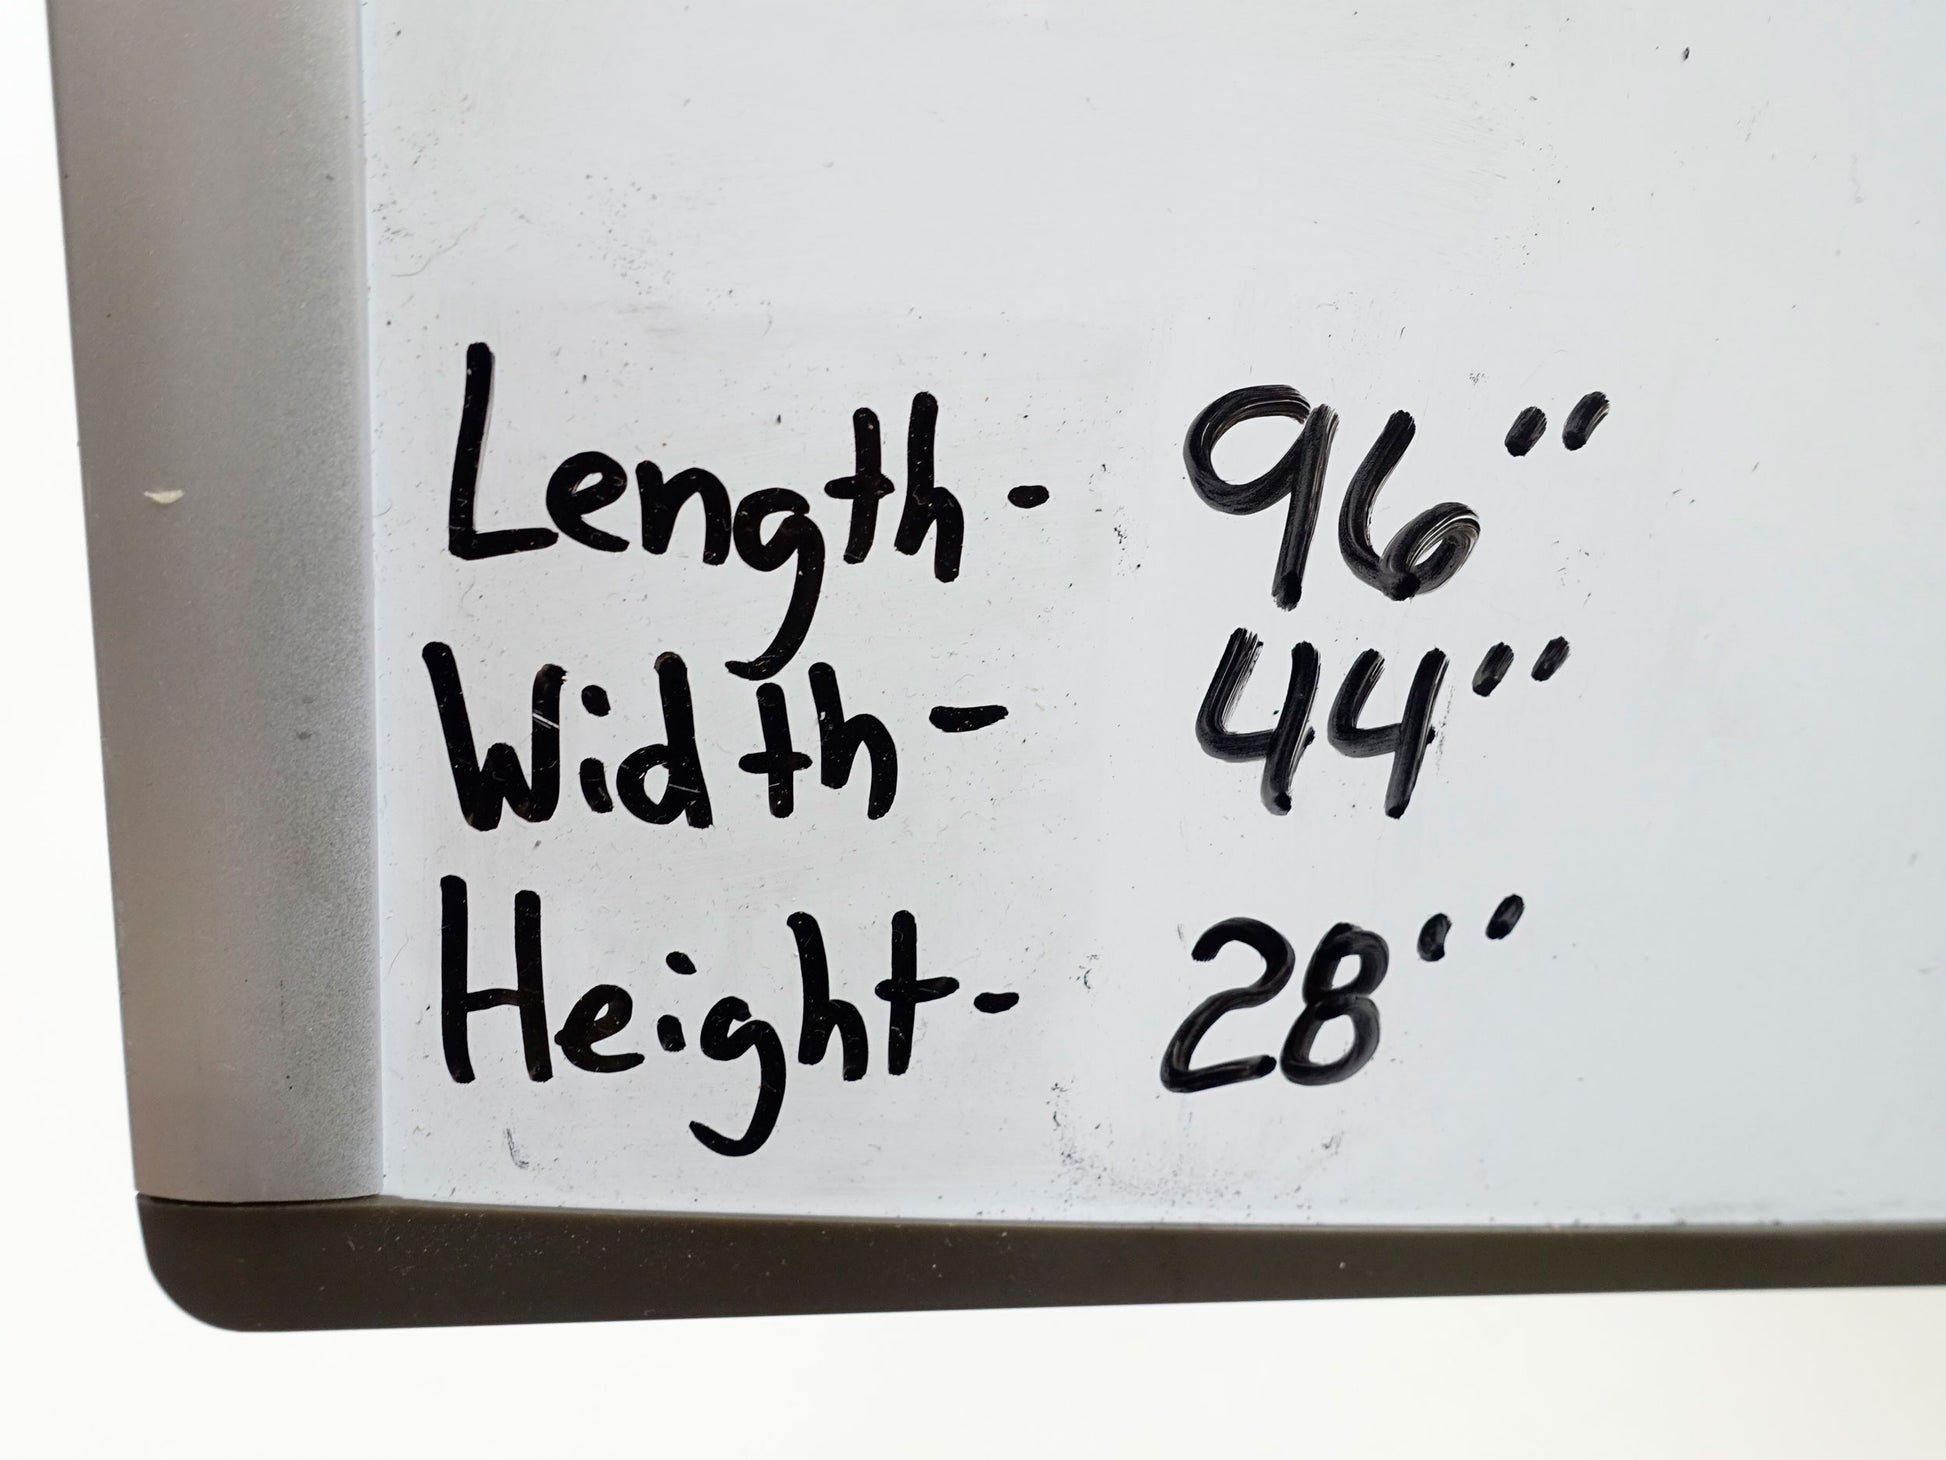 Length- 96"
Width- 44"
Height- 28"